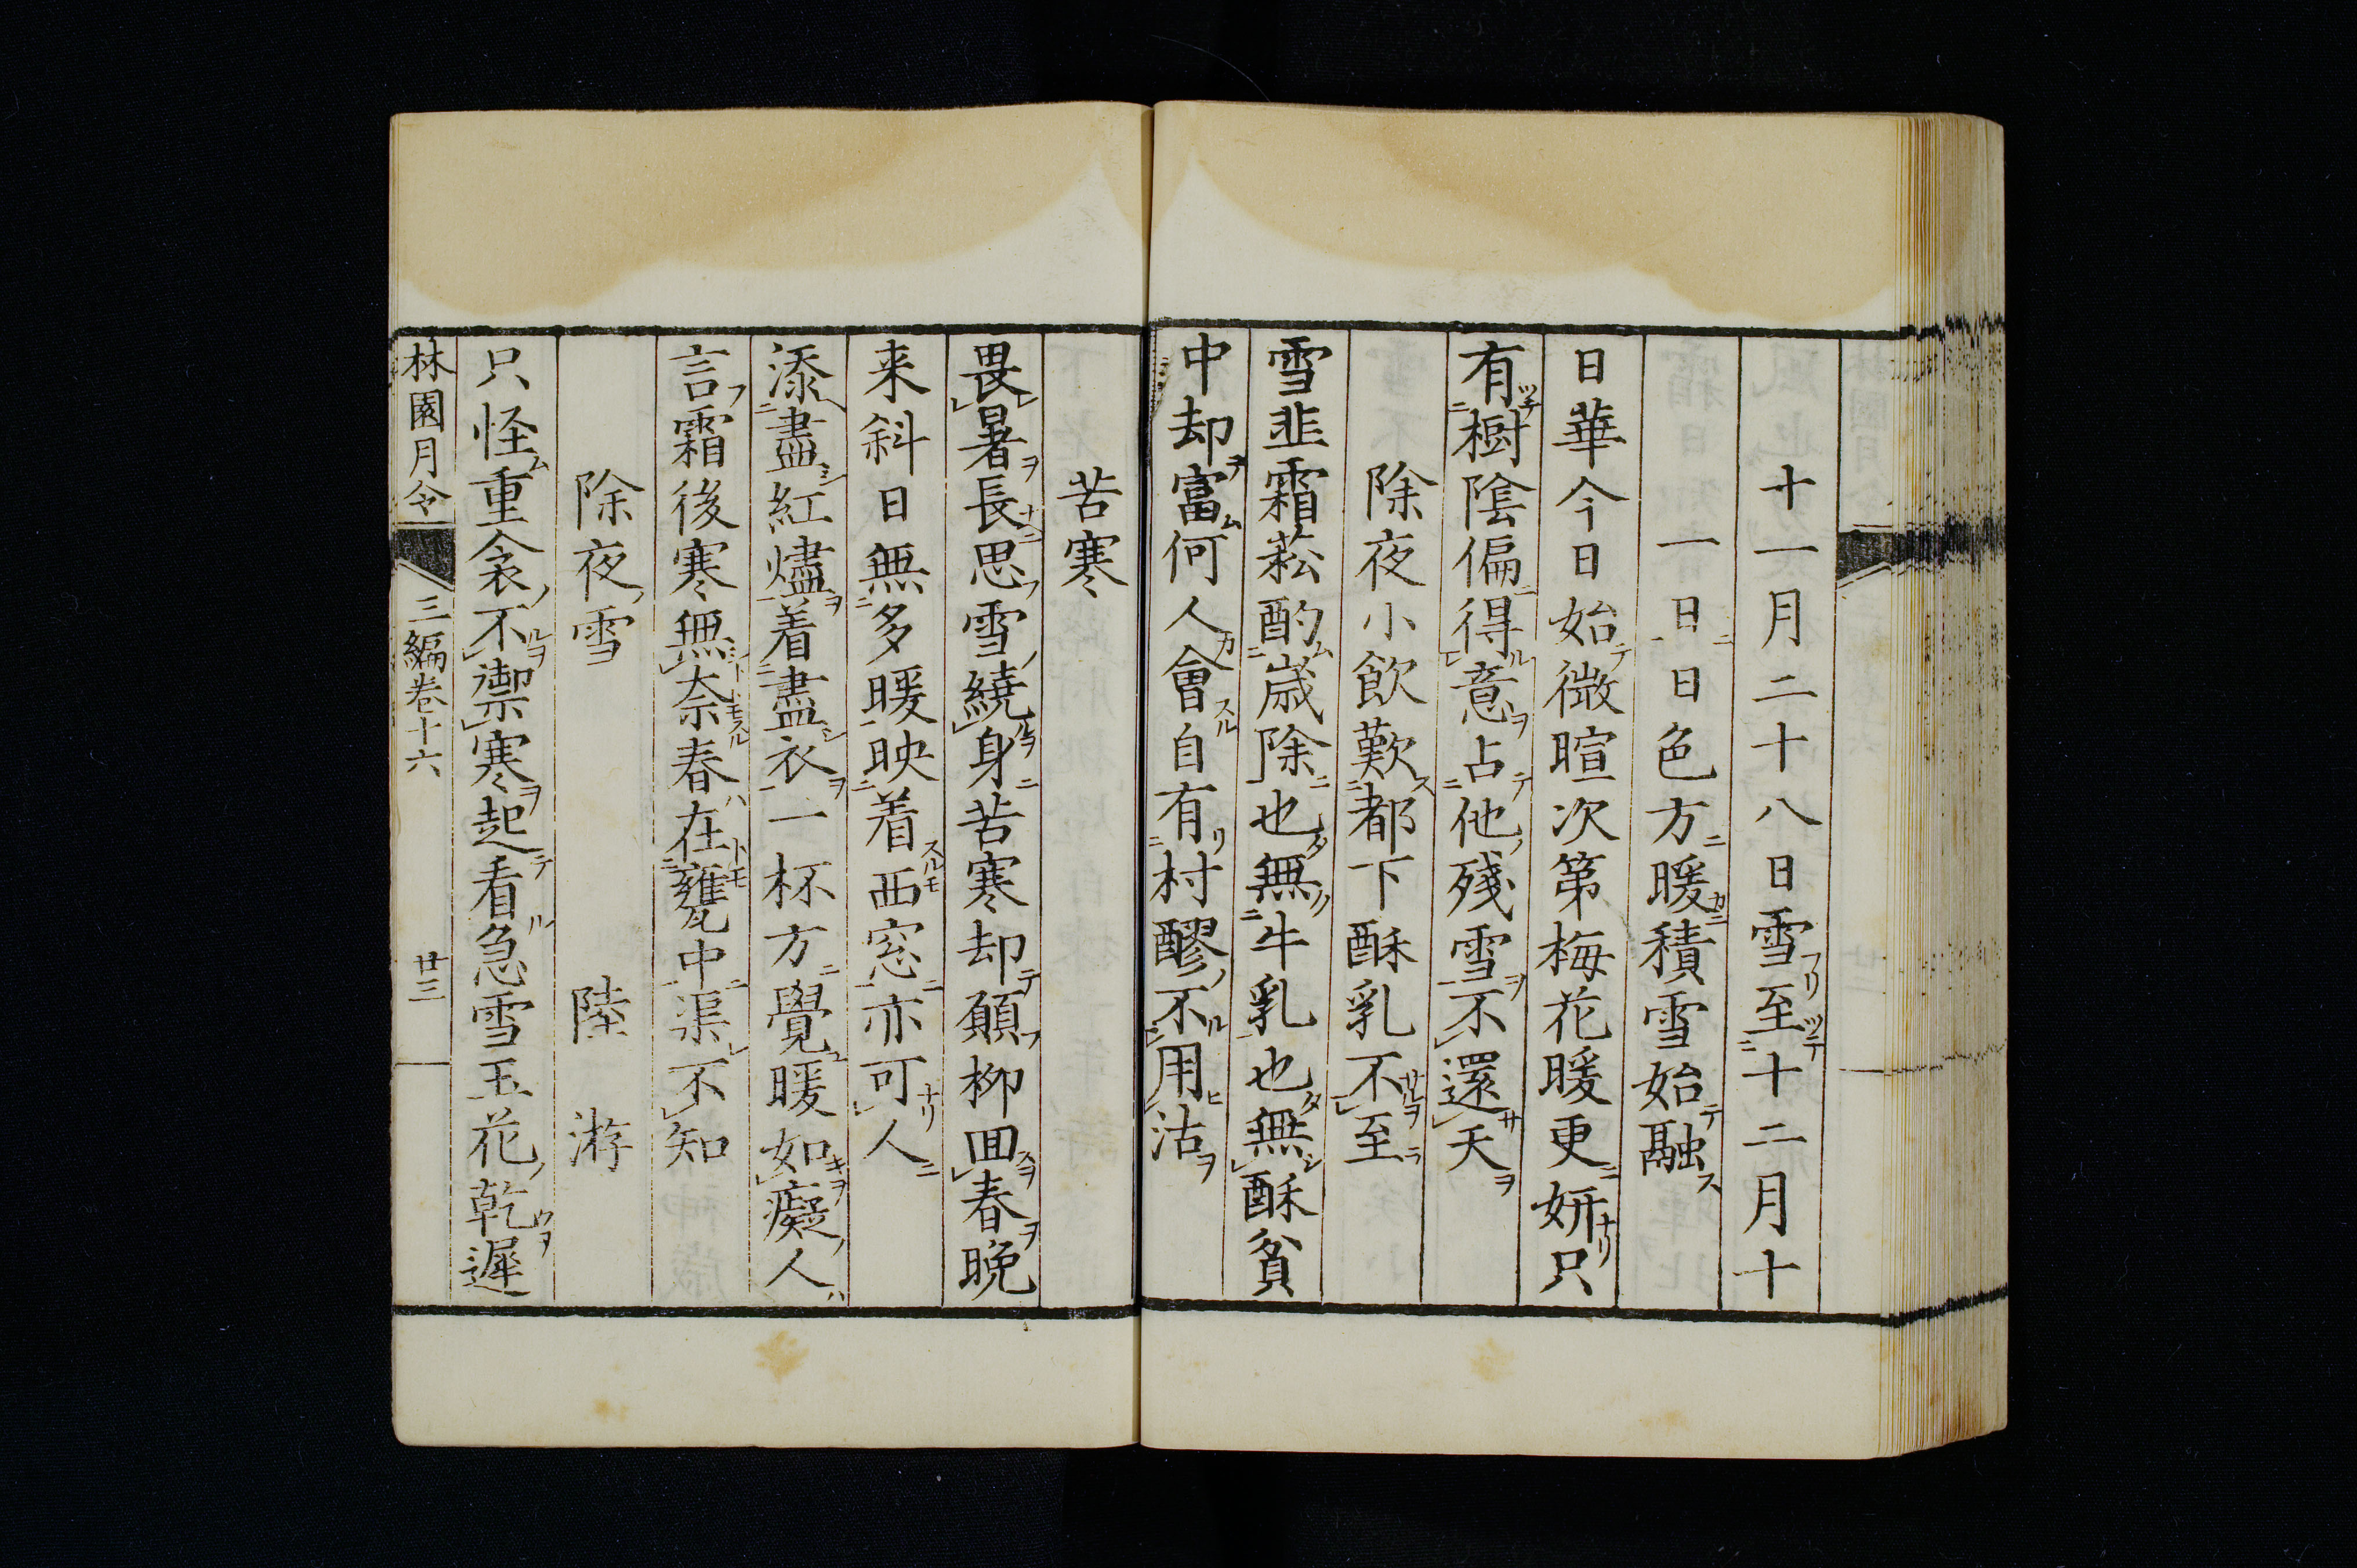 十一月二十八日雪至十二月十
一日日色方暖積雪始融
日華今日始微暄次第梅花暖更妍只
有樹陰偏得意占他殘雪不還天
除夜小飲歎都下酥乳不至
雪韭霜菘酌歲除也無牛乳也無酥貧
中却富何人會自有村醪不用沽
苦寒
畏暑長思雪繞身苦寒却願柳回春晚
来斜日無多暖映着西窓亦可人
添盡紅爐着盡衣一杯方覺暖如癡人
言霜後寒無奈春在甕中渠不知
除夜雪 陸游
只怪重衾不禦寒起看急雪玉花乾遲
林園月令 三編卷十六 廿三